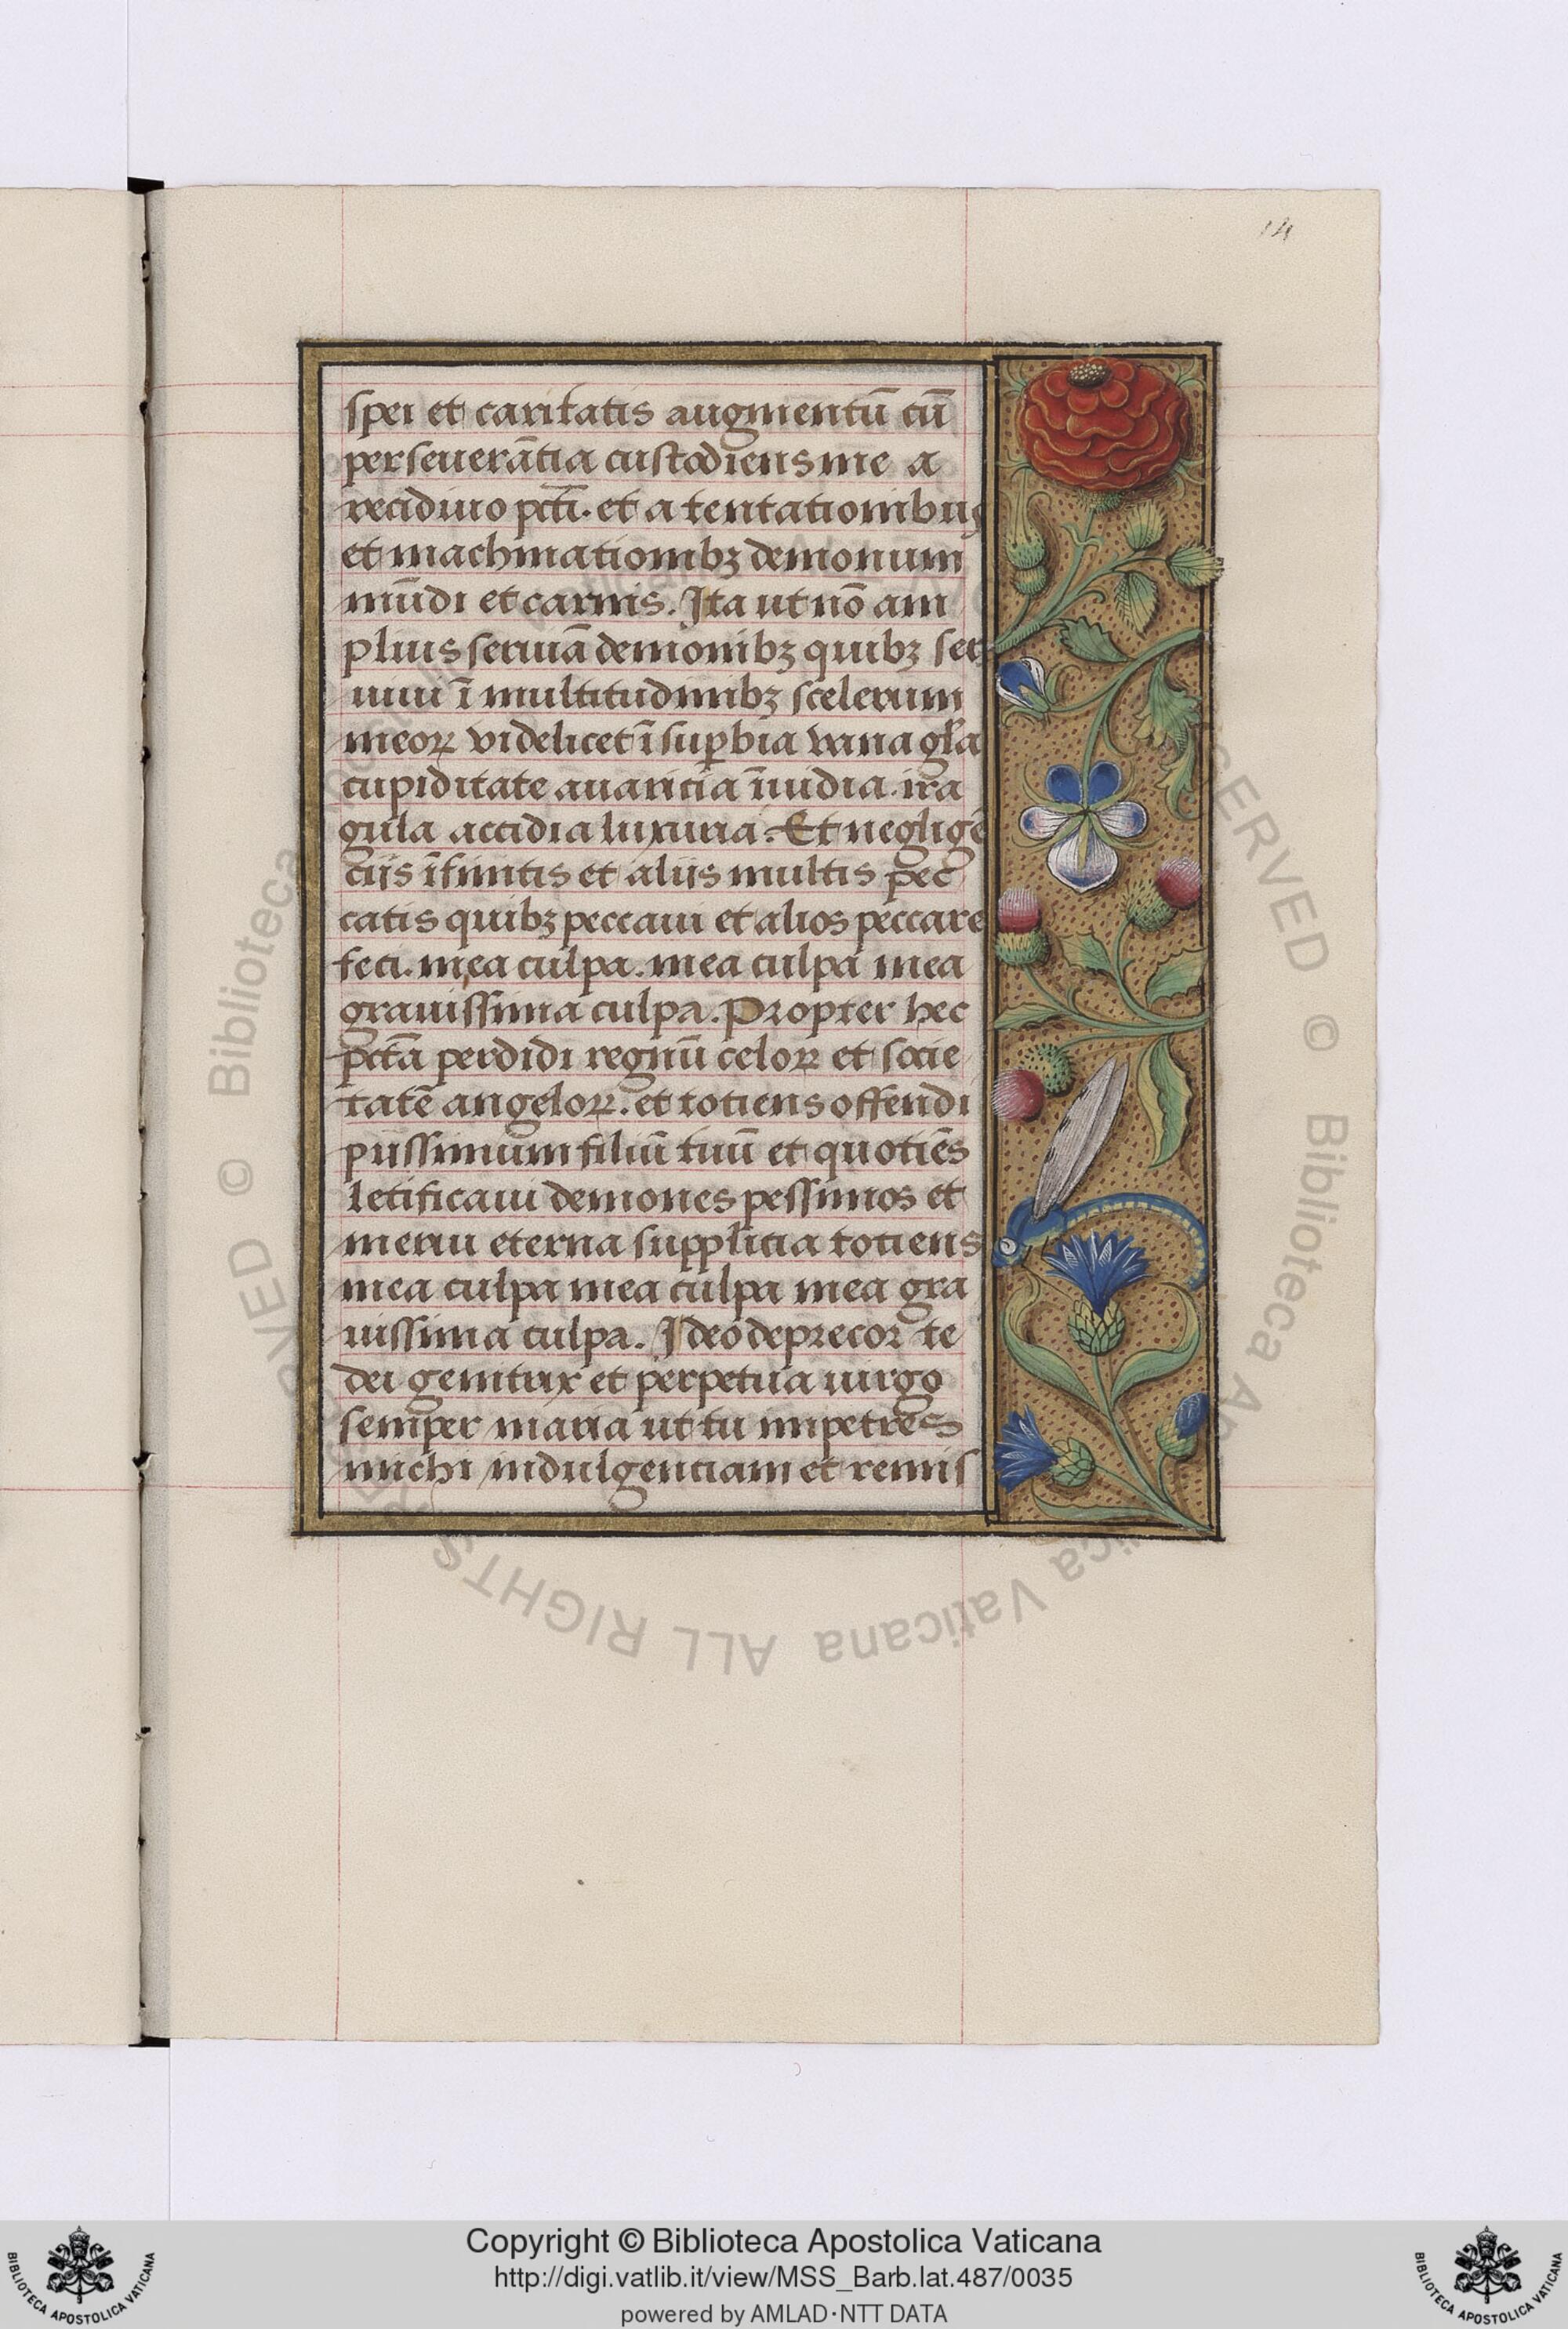 14
spei et caritatis augmentū cū
perseuerātia custodiens me a
recidiuo pcti̅. et a tentationibus
et machinationibꝫ demonum
mūdi et carnis. Ita ut nō am
plius seruiā demonibꝫ quibꝫ ser
uiui ī multitudinibꝫ scelerum
meoꝝ videlicet ī suꝑbia vana gl̄a
cupiditate auaricia īuidia. ira
gula accidia luxuria. Et negligē
ciis īfinitis et aliis multis pec
catis quibꝫ peccaui et alios peccare
feci. mea culpa. mea culpa mea
grauissima culpa. Propter hec
pctā perdidi regnū celoꝝ et socie
tatē angeloꝝ. et totiens offendi
piissimum filiū tuū et quotiēs
letificaui demones pessimos et
merui eterna supplicia totiens
mea culpa mea culpa mea gra
uissima culpa. Ideo deprecor te
dei genitrix et perpetua uirgo
semper maria ut tu impetres
michi indulgentiam et remis
© Biblioteca Apostolica Vaticana ALL RIGHTS RESERVED © Biblioteca
BIBLIOTECA APOSTOLICA VATICANA
Copyright © Biblioteca Apostolica Vaticana
http://digi.vatlib.it/view/MSS_Barb.lat.487/0035
powered by AMLAD·NTT DATA
BIBLIOTECA APOSTOLICA VATICANA